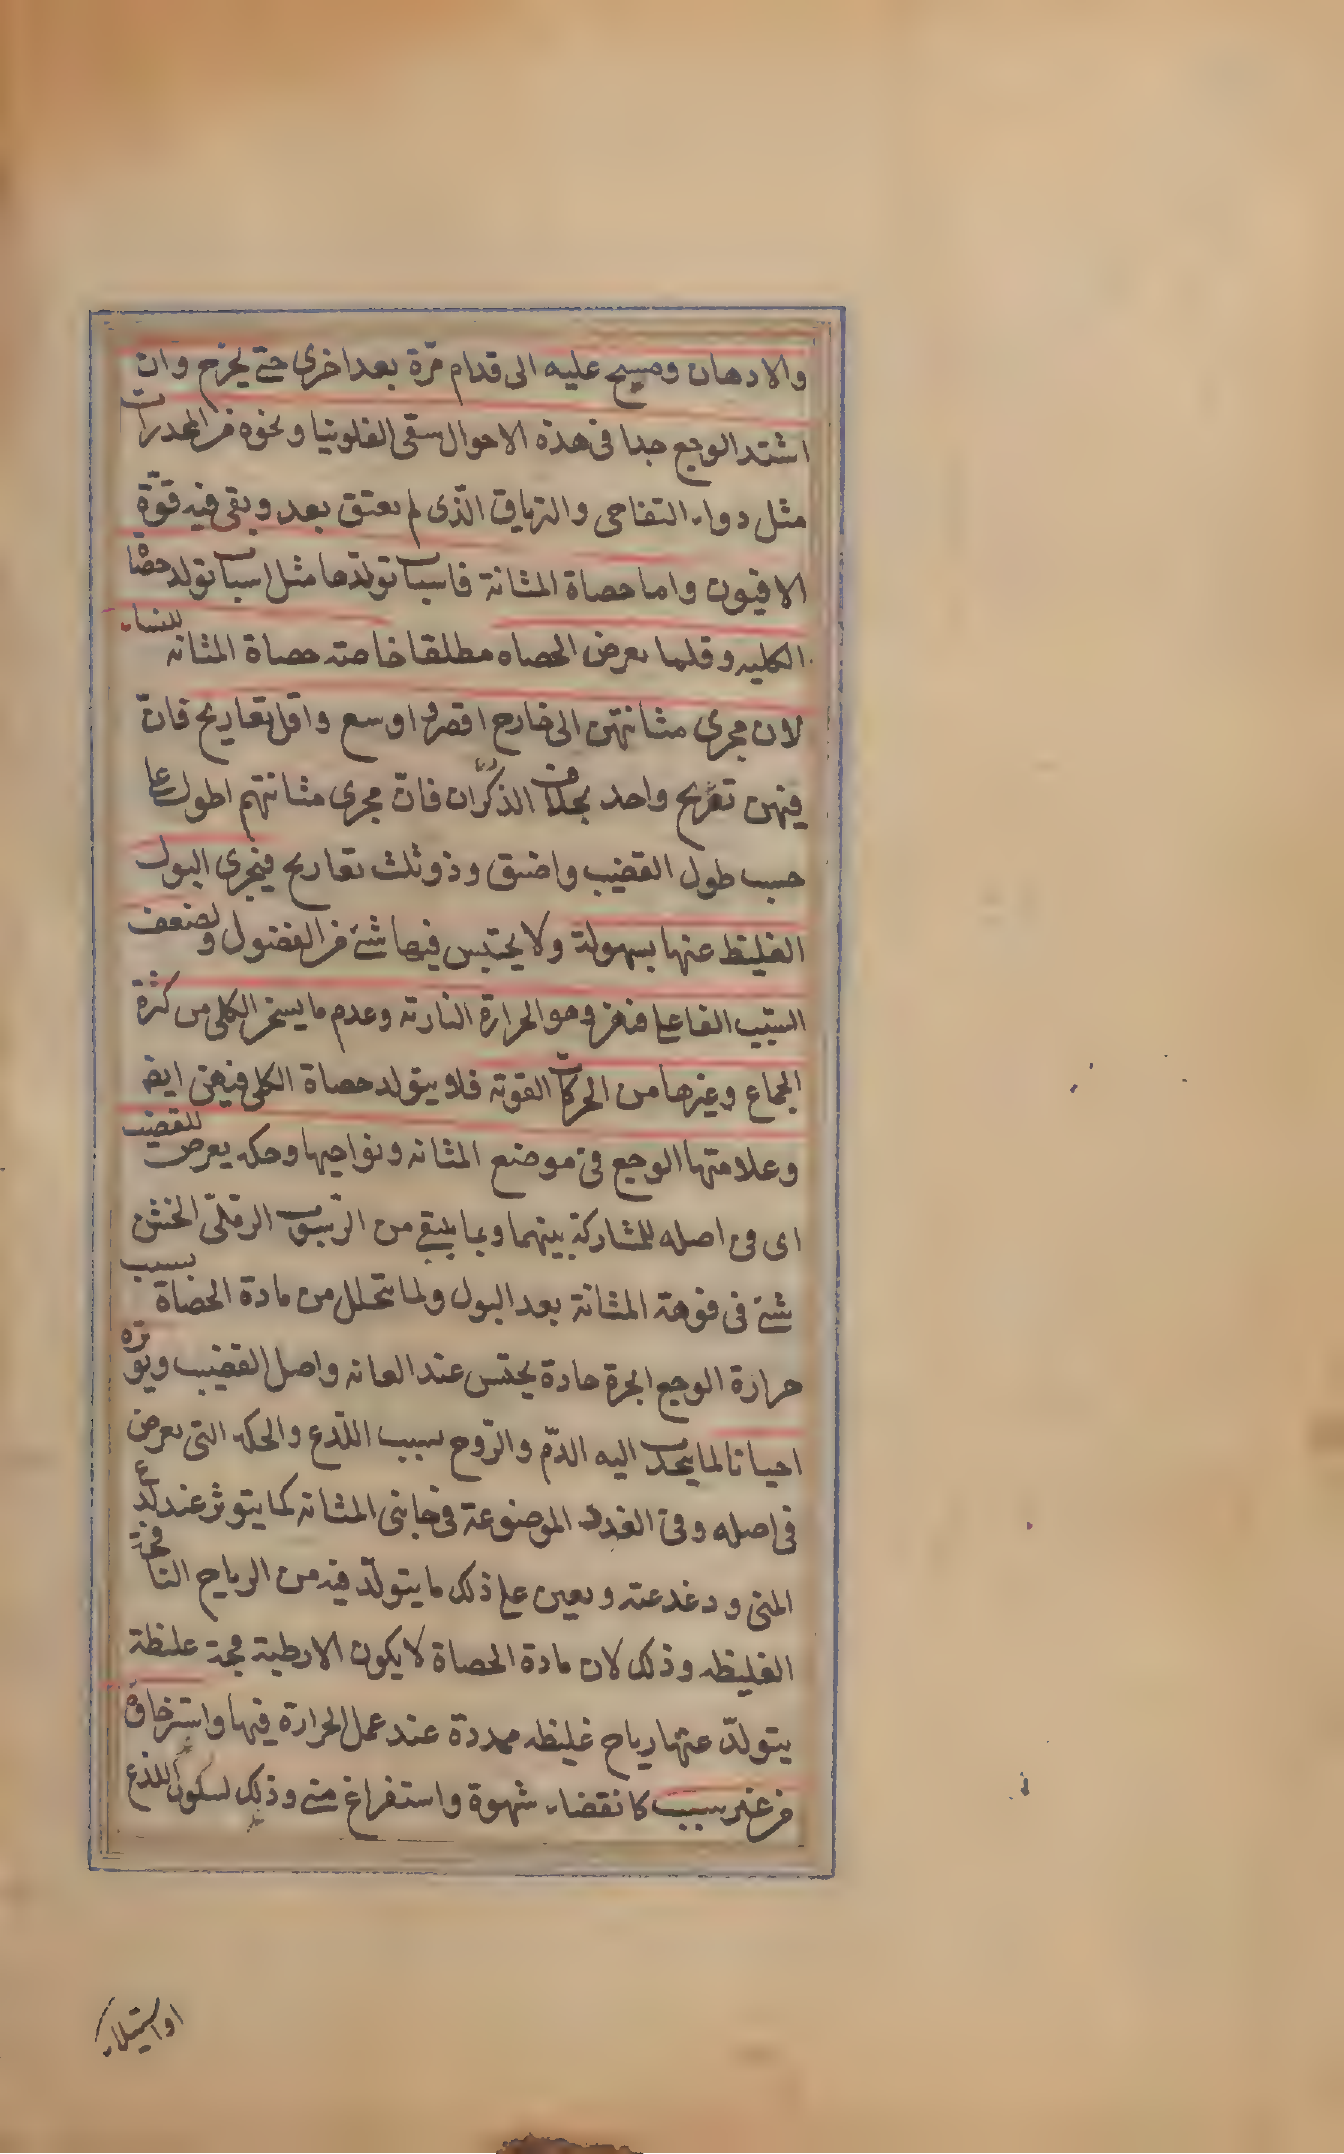 والادهان ومسح عليه الى قدام مرّة بعد اخرى حتى يخرج وان
اشتد الوجع جدا فى هذه الاحوال سقى الفلونيا ونحوه من المخدرات
مثل دواء التفاحى والترياق الذّى لم يعتق بعد وبقى فيه قوّة
الافيون واما حصاة المثانة فاسباب تولدّها مثل اسباب تولد حصاة
الكليه وقلما يعرض الحصاه مطلقا خاصته حصاة المثانه للنساء
لان مجرى مثانتهن الى خارج اقصر واوسع واقل تعاريج فانّ
فيهن تعريج واحد بخلاف الذكران فانّ مجرى مثانتهم اطول على
حسب طول القضيب واضيق وذو ثلث تعاريج فيجرى البول
الغليظ عنها بسهولة ولا يحتبس فيها شئ من الفضول ولضعف
السّبب الفاعلى فيهن وهو الحرارة الناريه وعدم ما يسخن الكلى من كثرة
الجماع وغيرها من الحركات القويه فلا يتولد حصاة الكلى فيهن ايضا
وعلامتها الوجع فى موضع المثانه ونواحيها وحكه يعرض للقضيب
اى فى اصله للمشاركة بينهما وبما يبقى من الرّسوب الرملىّ الخشن
شئ فى فوهة المثانة بعد البول ولما يتحلل من مادة الحصاة بسبب
حرارة الوجع ابخرة حادة يحتبس عند العانه واصل القضيب ويوتره
احيانا لما ينجذب اليه الدّم والرّوح بسبب اللّدع والحكه التى يعرض
فى اصله وفى الغدد الموضوعة فى جانبى المثانه كما يتوتر عند لدع
المنى ودغدعته ويعين على ذلك ما يتولدّ فيه من الرياح النافخة
الغليظه وذلك لان مادة الحصاة لا يكون الا رطبة فجة غليظة
يتولدّ عنها رياح غليظه ممددة عند عمل الحرارة فيها واسترخاؤه
من غير سبب كانقضاء شهوة واستفراغ منى وذلك لسكون اللذع
او استيلاء